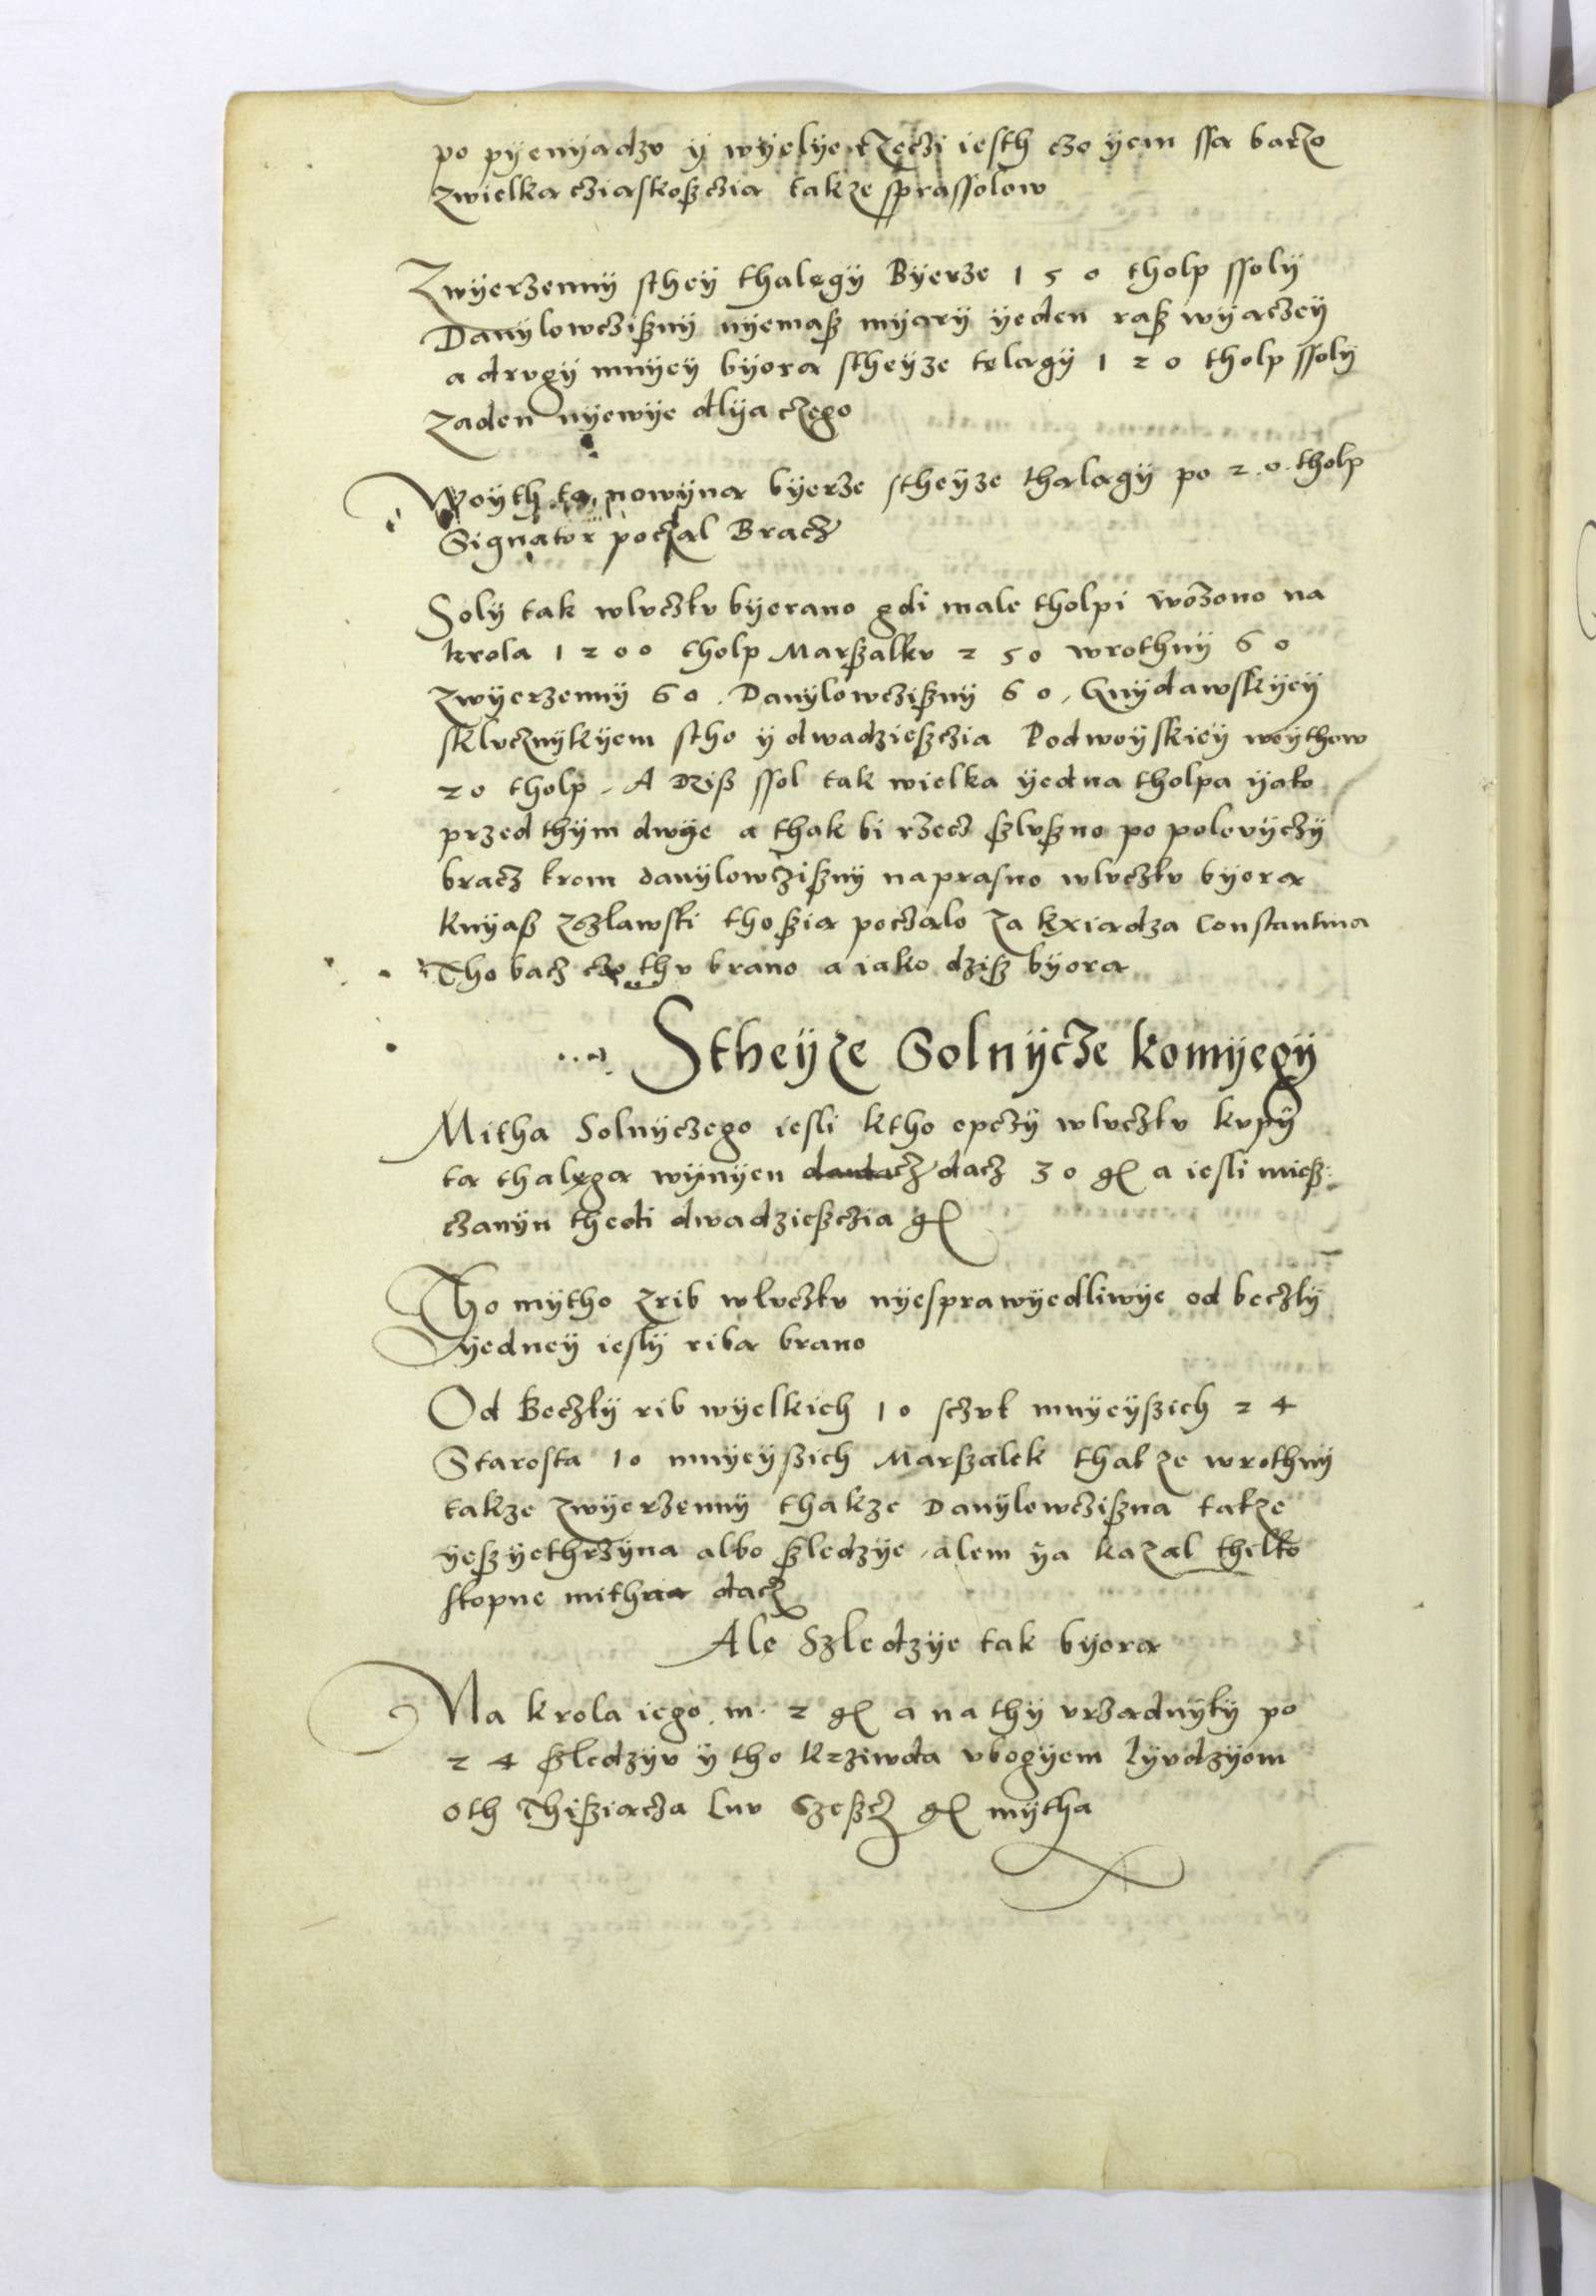 po pÿenÿadzv ÿ wÿelye rzeczi iesth czo ÿem ssa barzo
zwielka cziaskoßczia takze sprassolow
Zwÿerzennÿ stheÿ thalęgÿ Bÿerze 150 tholp ssolÿ
Danÿlowczißnÿ nÿemaß mÿarÿ ÿeden raß wÿaczeÿ
a drvgÿ mnÿeÿ bÿora stheÿze telagÿ 120 tholp ssolÿ
zaden nÿewÿe dlÿa czego
Woÿth ta nowÿna bÿerze stheÿze thalagÿ po 20 tholp
Signator poczal Bracz
Solÿ tak wlvczkv bÿerano gdi male tholpi wozono na
krola 1200 tholp Marßalkv 250 wrothnÿ 60
zwÿerzennÿ 60. Danÿlowczißnÿ 60, Gnÿdawskÿeÿ
sklvcznÿkÿem stho ÿ dwadzießczia Podwoÿskieÿ woÿthow
20 tholp, A dziß ssol tak wielka ÿedna tholpa ÿako
przed thÿm dwÿe a thak bi rzecz ßlvßno po polovÿczÿ
bracz krom danÿlowczißnÿ naprasno wlvczkv bÿora
knÿaß zozlawski thoßia poczalo za kxiadza Constantina
Tho bacz czo thv brano a iako dziß bÿora
Stheÿze Solnÿcze komÿegÿ
Mitha Solnÿczego iesli ktho opczÿ wlvczkv kvpÿ
ta thalęga wÿnÿen dacz 30 gl a iesli mieß:
czanÿn thedi dwadzießczia gl
Tho mÿtho zrib wlvczkv nÿesprawÿedliwÿe od beczkÿ
ÿedneÿ ieslÿ riba brano
Od Beczkÿ rib wÿelkich 10 sczvk mnÿeÿßich 24
Starosta 10 mnÿeÿßich Marßalek thakze wrothnÿ
takze zwÿerzennÿ thakze Danÿlowczißna takze
ÿeßÿethrzÿna albo ßledzÿe, alem ÿa kazal thilko
skopne mitha dacz
Ale Szledzÿe tak bÿora
Na krola iego m. 2 gl a na thÿ vrzadnÿkÿ po
24 ßledzÿv ÿ tho krziwda vbogÿem lÿvdzÿom
oth Thißiacza Inv Szeßcz gl mÿtha